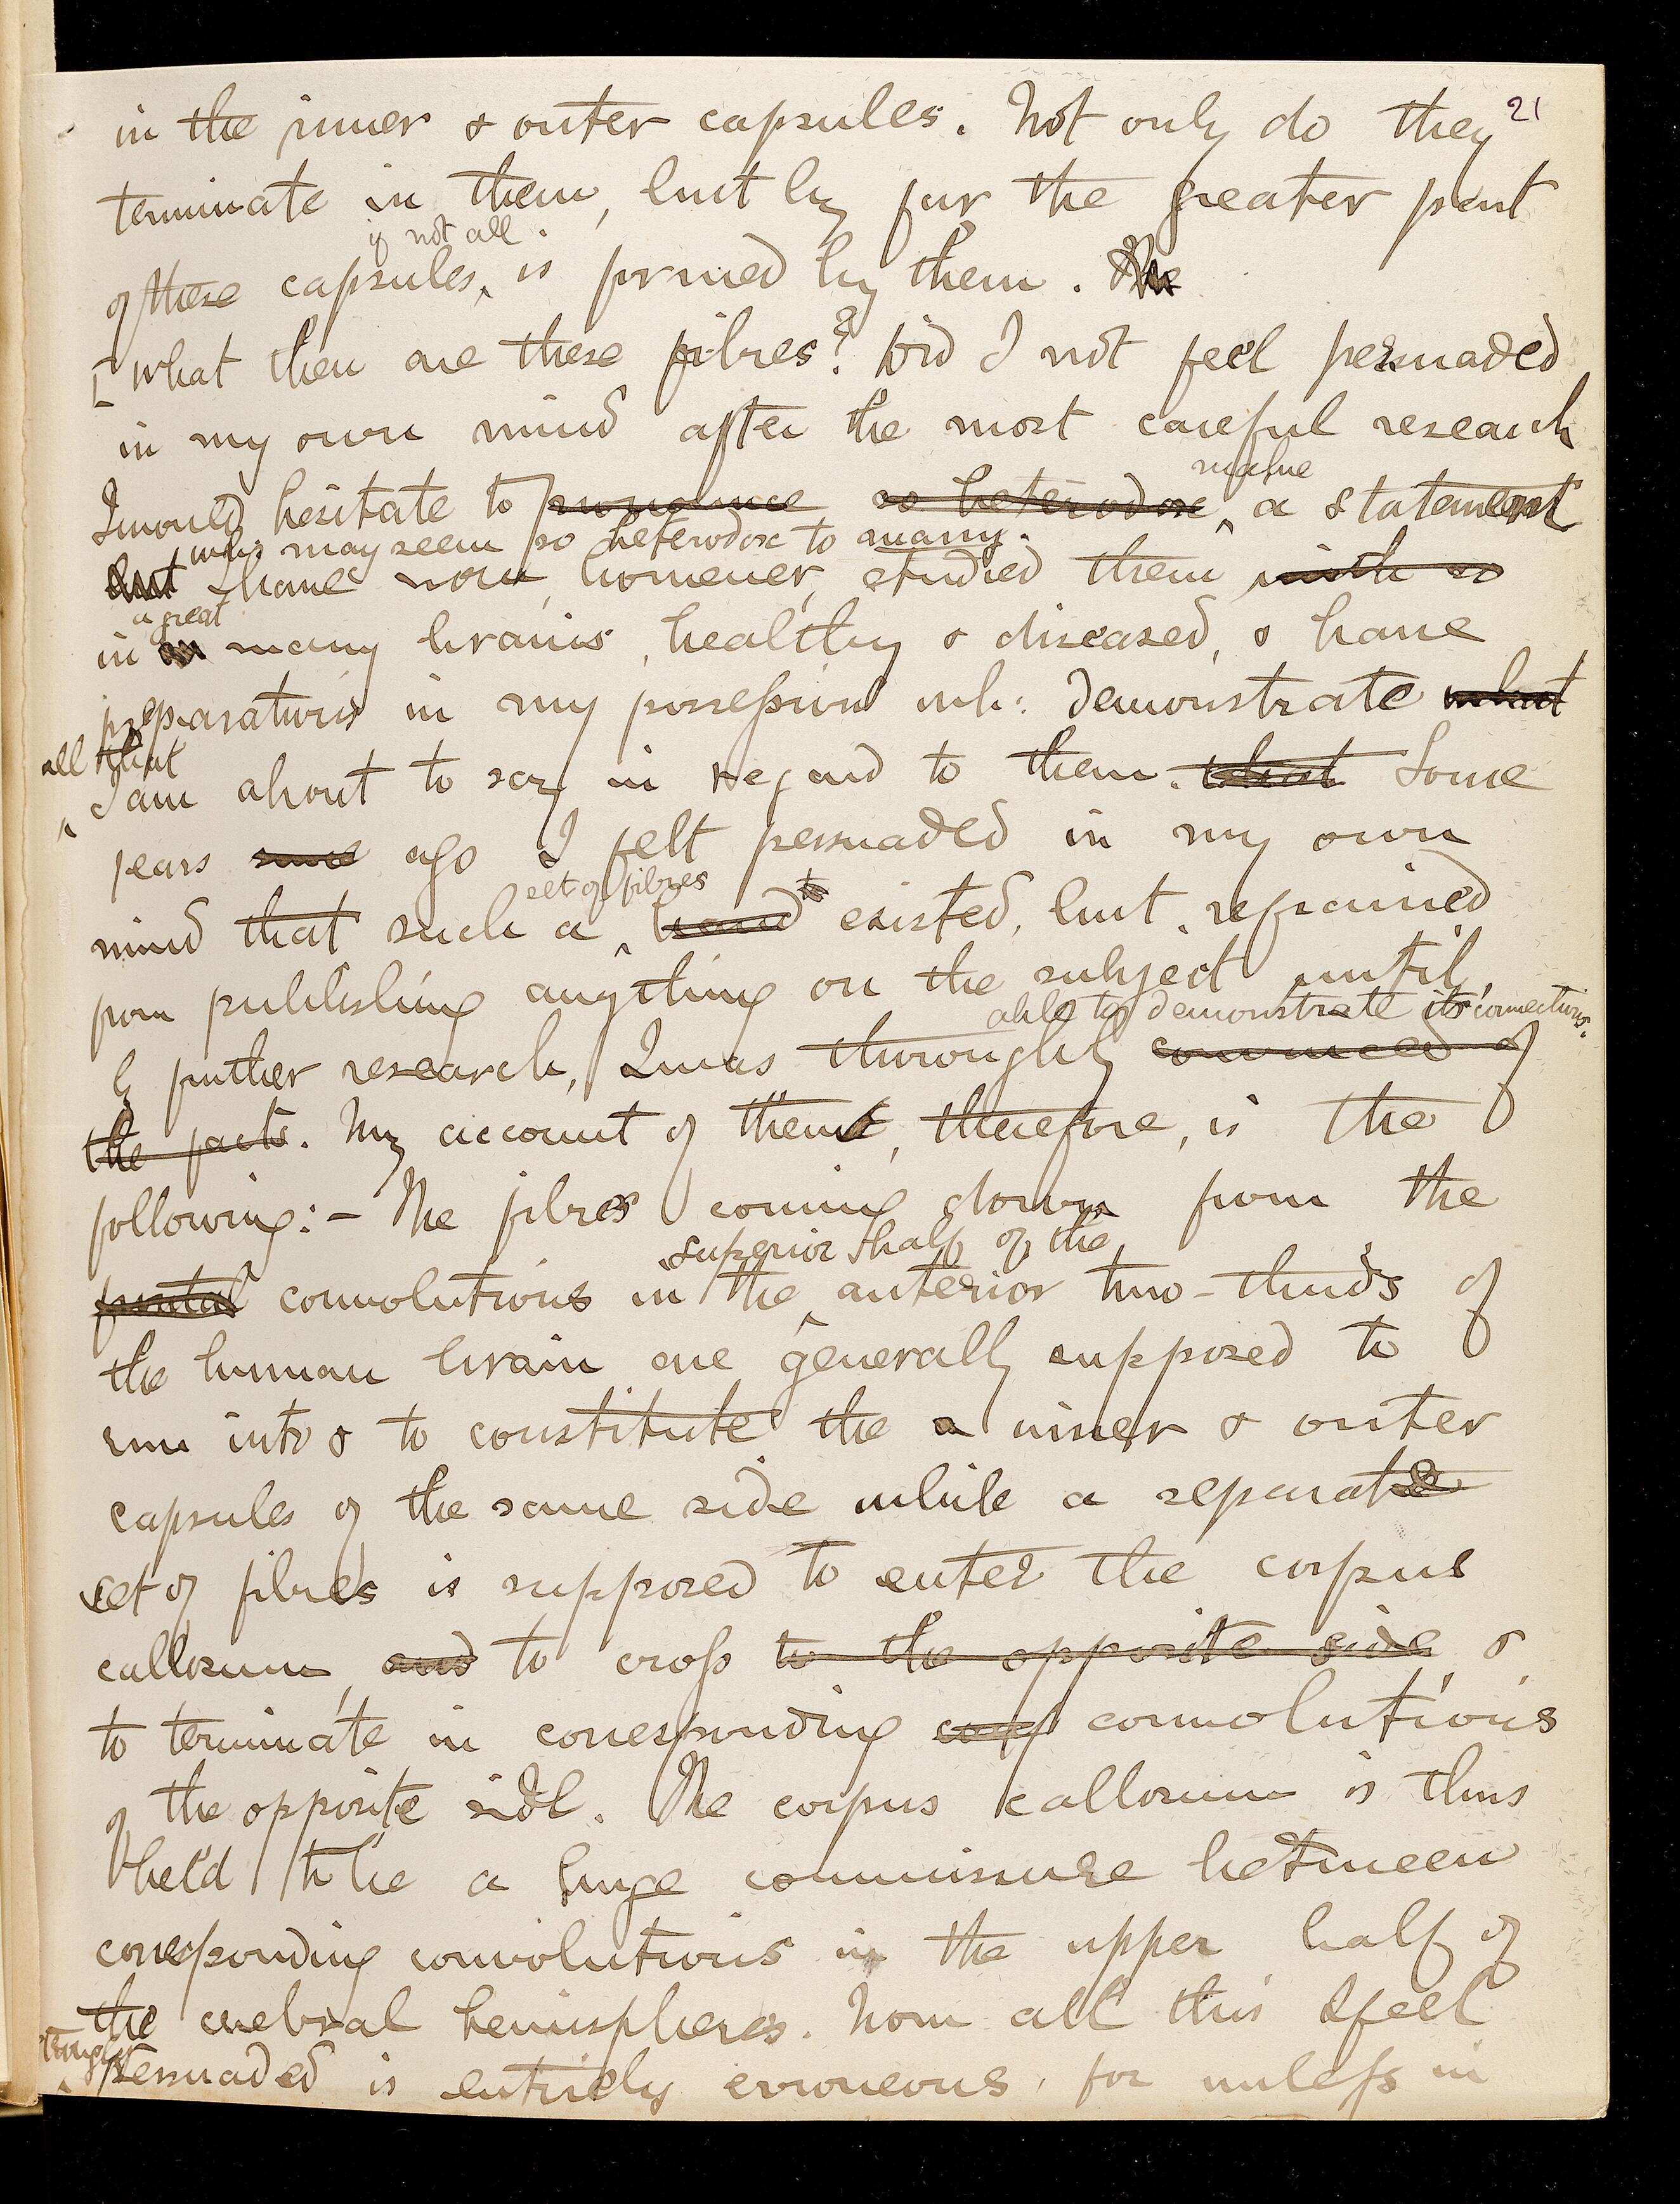 21
in the inner & outer capsules. Not only do they
terminate in them, but by far the greater part
if not all
of these capsules, is formed by them. The
[What then are these fibres? Did I not feel persuaded
in my own mind after the most careful research
make
I would hesitate to pronounce so heterodox a statement
wh: may seem so heterodox to many.
But I have now, however, studied them, with so
a great
in many brains, healthy & diseased, & have
preparations in my possession wh: demonstrate what
all that
I am about to say in regard to them. that Some
years since ago I felt persuaded in my own
set of fibres
mind that such a band existed, but refrained
from publishing anything on the subject until,
able to demonstrate its connections.
by further research, I was thoroughly convinced of
the facts. My account of them, therefore, is the
following:- The fibres coming down from the
superior half of the
frontal convolutions in the anterior two-thirds of
the human brain are generally supposed to
run into & to constitute the inner & outer
capsules of the same side while a separate
set of fibres is supposed to enter the corpus
callosum and to cross to the opposite side &
to terminate in corresponding convolutions
of the opposite side. The corpus callosum is thus
held to be a huge commissure between
corresponding convolutions in the upper half of
the cerebral hemispheres. Now all this I feel
strongly
persuaded is entirely erroneous, for unless in